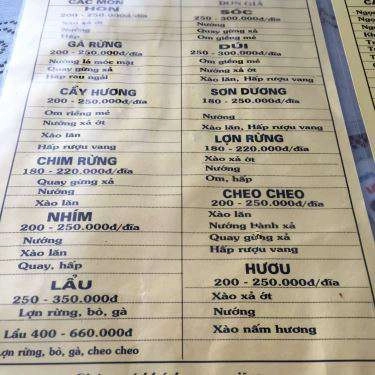 CÁC MÓN
HÔN
200 - 250.000đ/đĩa
Nướng
Hấp
GÀ RỪNG
200 - 250.000đ/đĩa
Nướng lá móc mật
Quay gừng xả
Hấp rau ngải
CẦY HƯƠNG
200 - 250.000đ/đĩa
Om riềng mẻ
Nướng xả ớt
Xào lăn
Hấp rượu vang
CHIM RỪNG
180 - 220.000đ/đĩa
Quay gừng xả
Nướng
Xào lăn
NHÍM
200 - 250.000đ/đĩa
Nướng
Xào lăn
Quay, hấp
LẨU
250 - 350.000đ
Lợn rừng, bò, gà
Lẩu 400 - 660.000đ
Lợn rừng, bò, gà, cheo cheo
SÓC
250 - 300.000đ/đĩa
Nướng
Om giềng mẻ
DÚI
250 - 300.000đ/đĩa
Om giềng mẻ
Nướng xả ớt
Xào lăn, Hấp rượu vang
SƠN DƯƠNG
180 - 250.000đ/đĩa
Nướng
Xào lăn, Hấp rượu vang
LỢN RỪNG
180 - 220.000đ/đĩa
Xào xả ớt
Nướng
Om, hấp
CHEO CHEO
200 - 250.000đ/đĩa
Xào lăn
Nướng bành xả
Quay gừng xả
Hấp rượu vang
HƯƠU
200 - 250.000đ/đĩa
Xào xả ớt
Nướng
Xào nấm hương